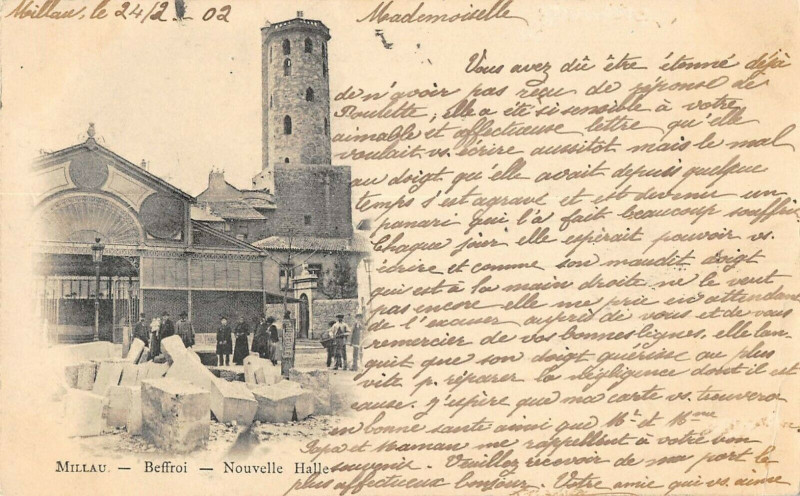 Millau, le 24/2 - 02
Mademoiselle
Vous avez dû être étonné déjà
de n'avoir pas reçu de réponse de
Poulette, elle a été si sensible à votre
aimable et affectueuse lettre qu'elle
voulait vs. écrire aussitôt mais le mal
au doigt qu'elle avait depuis quelque
temps s'est agravé et est devenir un
panari qui l'a fait beaucoup souffrir
Chaque jour elle espérait pouvoir vs.
écrire et comme son maudit doigt
qui est à la main droite ne le veut
pas encore elle me prie en attendant
de l'excuser auprès de vous et de vous
remercier de vos bonnes lignes, elle lan-
guit que son doigt guérisse au plus
vite p. réparer la négligence dont il est
cause. J'espère que ma carte vs. trouvera
en bonne santé ainsi que Mr. et Mme
Papa et Maman me rappellent à votre bon
souvenir. Veuillez recevoir de ma part le
plus affectueux bonjour. Votre amie qui vs. aime
MILLAU. — Beffroi — Nouvelle Halle